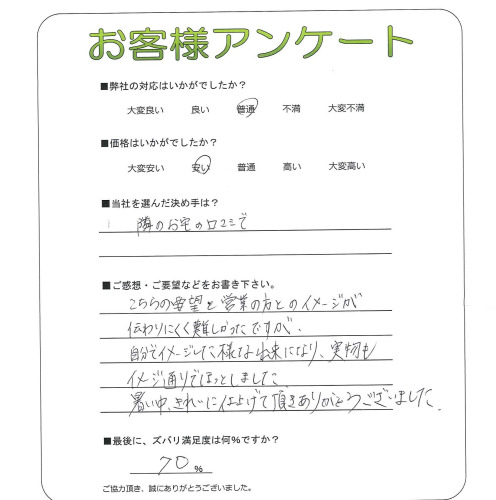 お客様アンケート
■弊社の対応はいかがでしたか？
大変良い 良い 普通 不満 大変不満
■価格はいかがでしたか？
大変安い 安い 普通 高い 大変高い
■当社を選んだ決め手は？
隣のお宅の口コミで
■ご感想・ご要望などをお書き下さい。
こちらの要望と営業の方とのイメージが
伝わりにくく難しかったですが、
自分でイメージした様な出来になり、実物も
イメージ通りでほっとしました
暑い中、きれいに仕上げて頂きありがとうございました。
■最後に、ズバリ満足度は何％ですか？
70％
ご協力頂き、誠にありがとうございました。